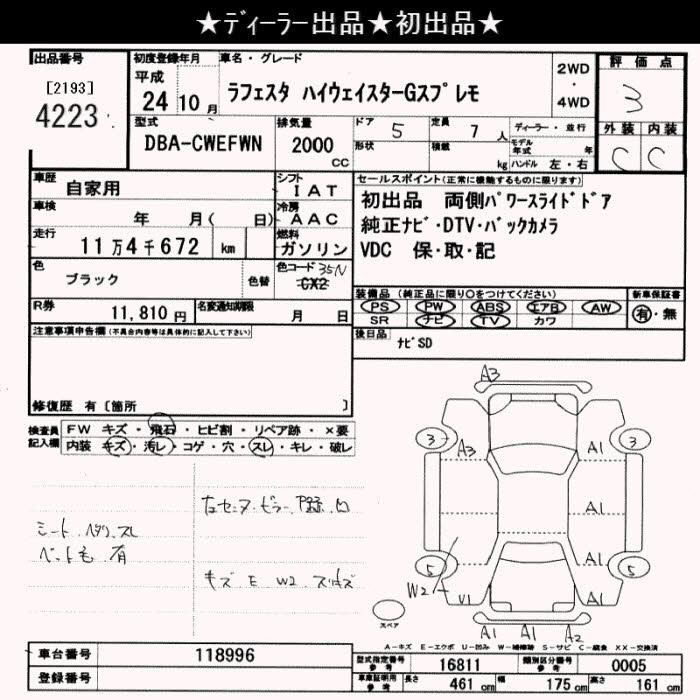 ★ディーラー出品★初出品★
出品番号
[2193]
4223
初度登録年月
平成
24 10 月
車名・グレード
ラフェスタ ハイウェイスターGスプレモ
2WD
・
4WD
評価点
3
外装 内装
C C
型式
DBA-CWEFWN
排気量
2000
CC
ドア 5
定員 7 人
形状
積載 kg
ディーラー・並行
モデル年式 年
ハンドル 左・右
車歴
自家用
シフト
I A T
車検
年 月( 日)
冷房
A A C
走行
11万4千672 km
燃料
ガソリン
セールスポイント(正常に機能するものに限ります)
初出品 両側パワースライドドア
純正ナビ・DTV・バックカメラ
VDC 保・取・記
色
ブラック
色替
色コード 35N
CX2
R券
11,810 円
名変通知期限
月 日
装備品(純正品に限り○をつけてください)
PS PW ABS エアB AW
SR ナビ TV カワ
新車保証書
有・無
後日品
ナビSD
注意事項申告欄(不具合内容等は具体的に記入して下さい)
修復歴 有〔箇所 〕
検査員記入欄
FW キズ・飛石・ヒビ割・リペア跡・×要
内装 キズ・汚レ・コゲ・穴・スレ・キレ・破レ
シート ヘタリ スレ
ペット毛 有
キズ E W2 スリキズ
A3
3
A3
A1
3
A1
5
A1
5
W2
V1
A1
A1 A1 A2
スペア
A－キズ E－エクボ U－凹み W－補修跡 S－サビ C－腐食 XX－交換済
車台番号
118996
登録番号
型式指定番号 参考
16811
類別区分番号 参考
0005
車庫証明用 参考
長さ 461 cm 幅 175 cm 高さ 161 cm